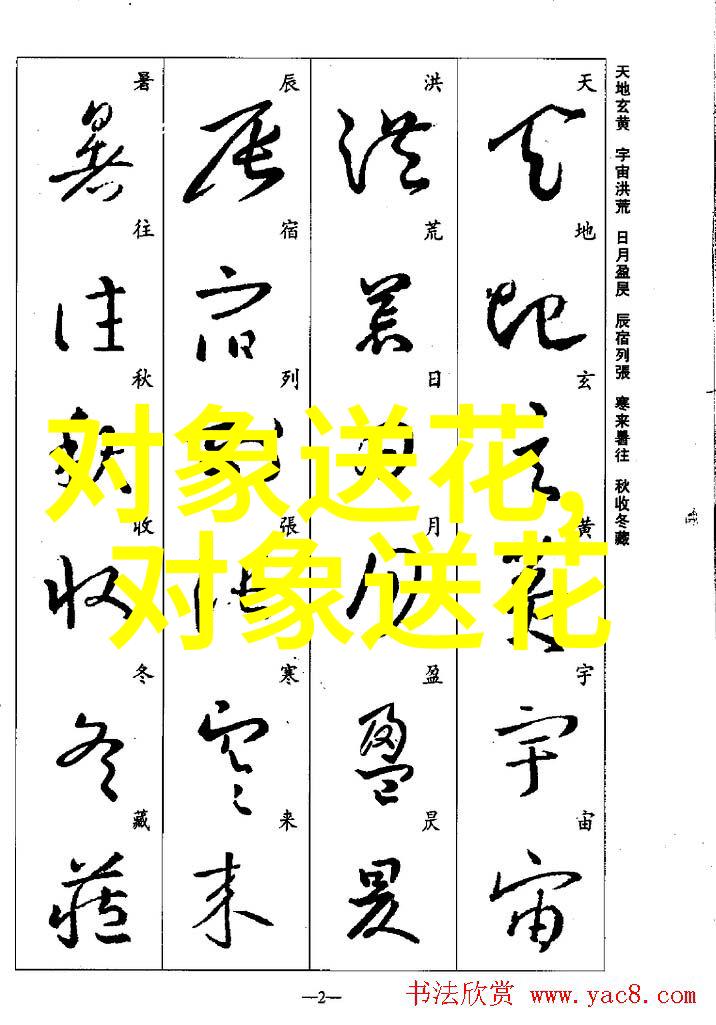 天地玄黄 宇宙洪荒 日月盈昃 辰宿列張 寒来暑往 秋收冬藏
天地玄黄宇宙
洪荒日月盈昃
辰宿列張寒来
暑往秋收冬藏
对象送花,
对象送花
—2—
书法欣赏 www.yac8.com